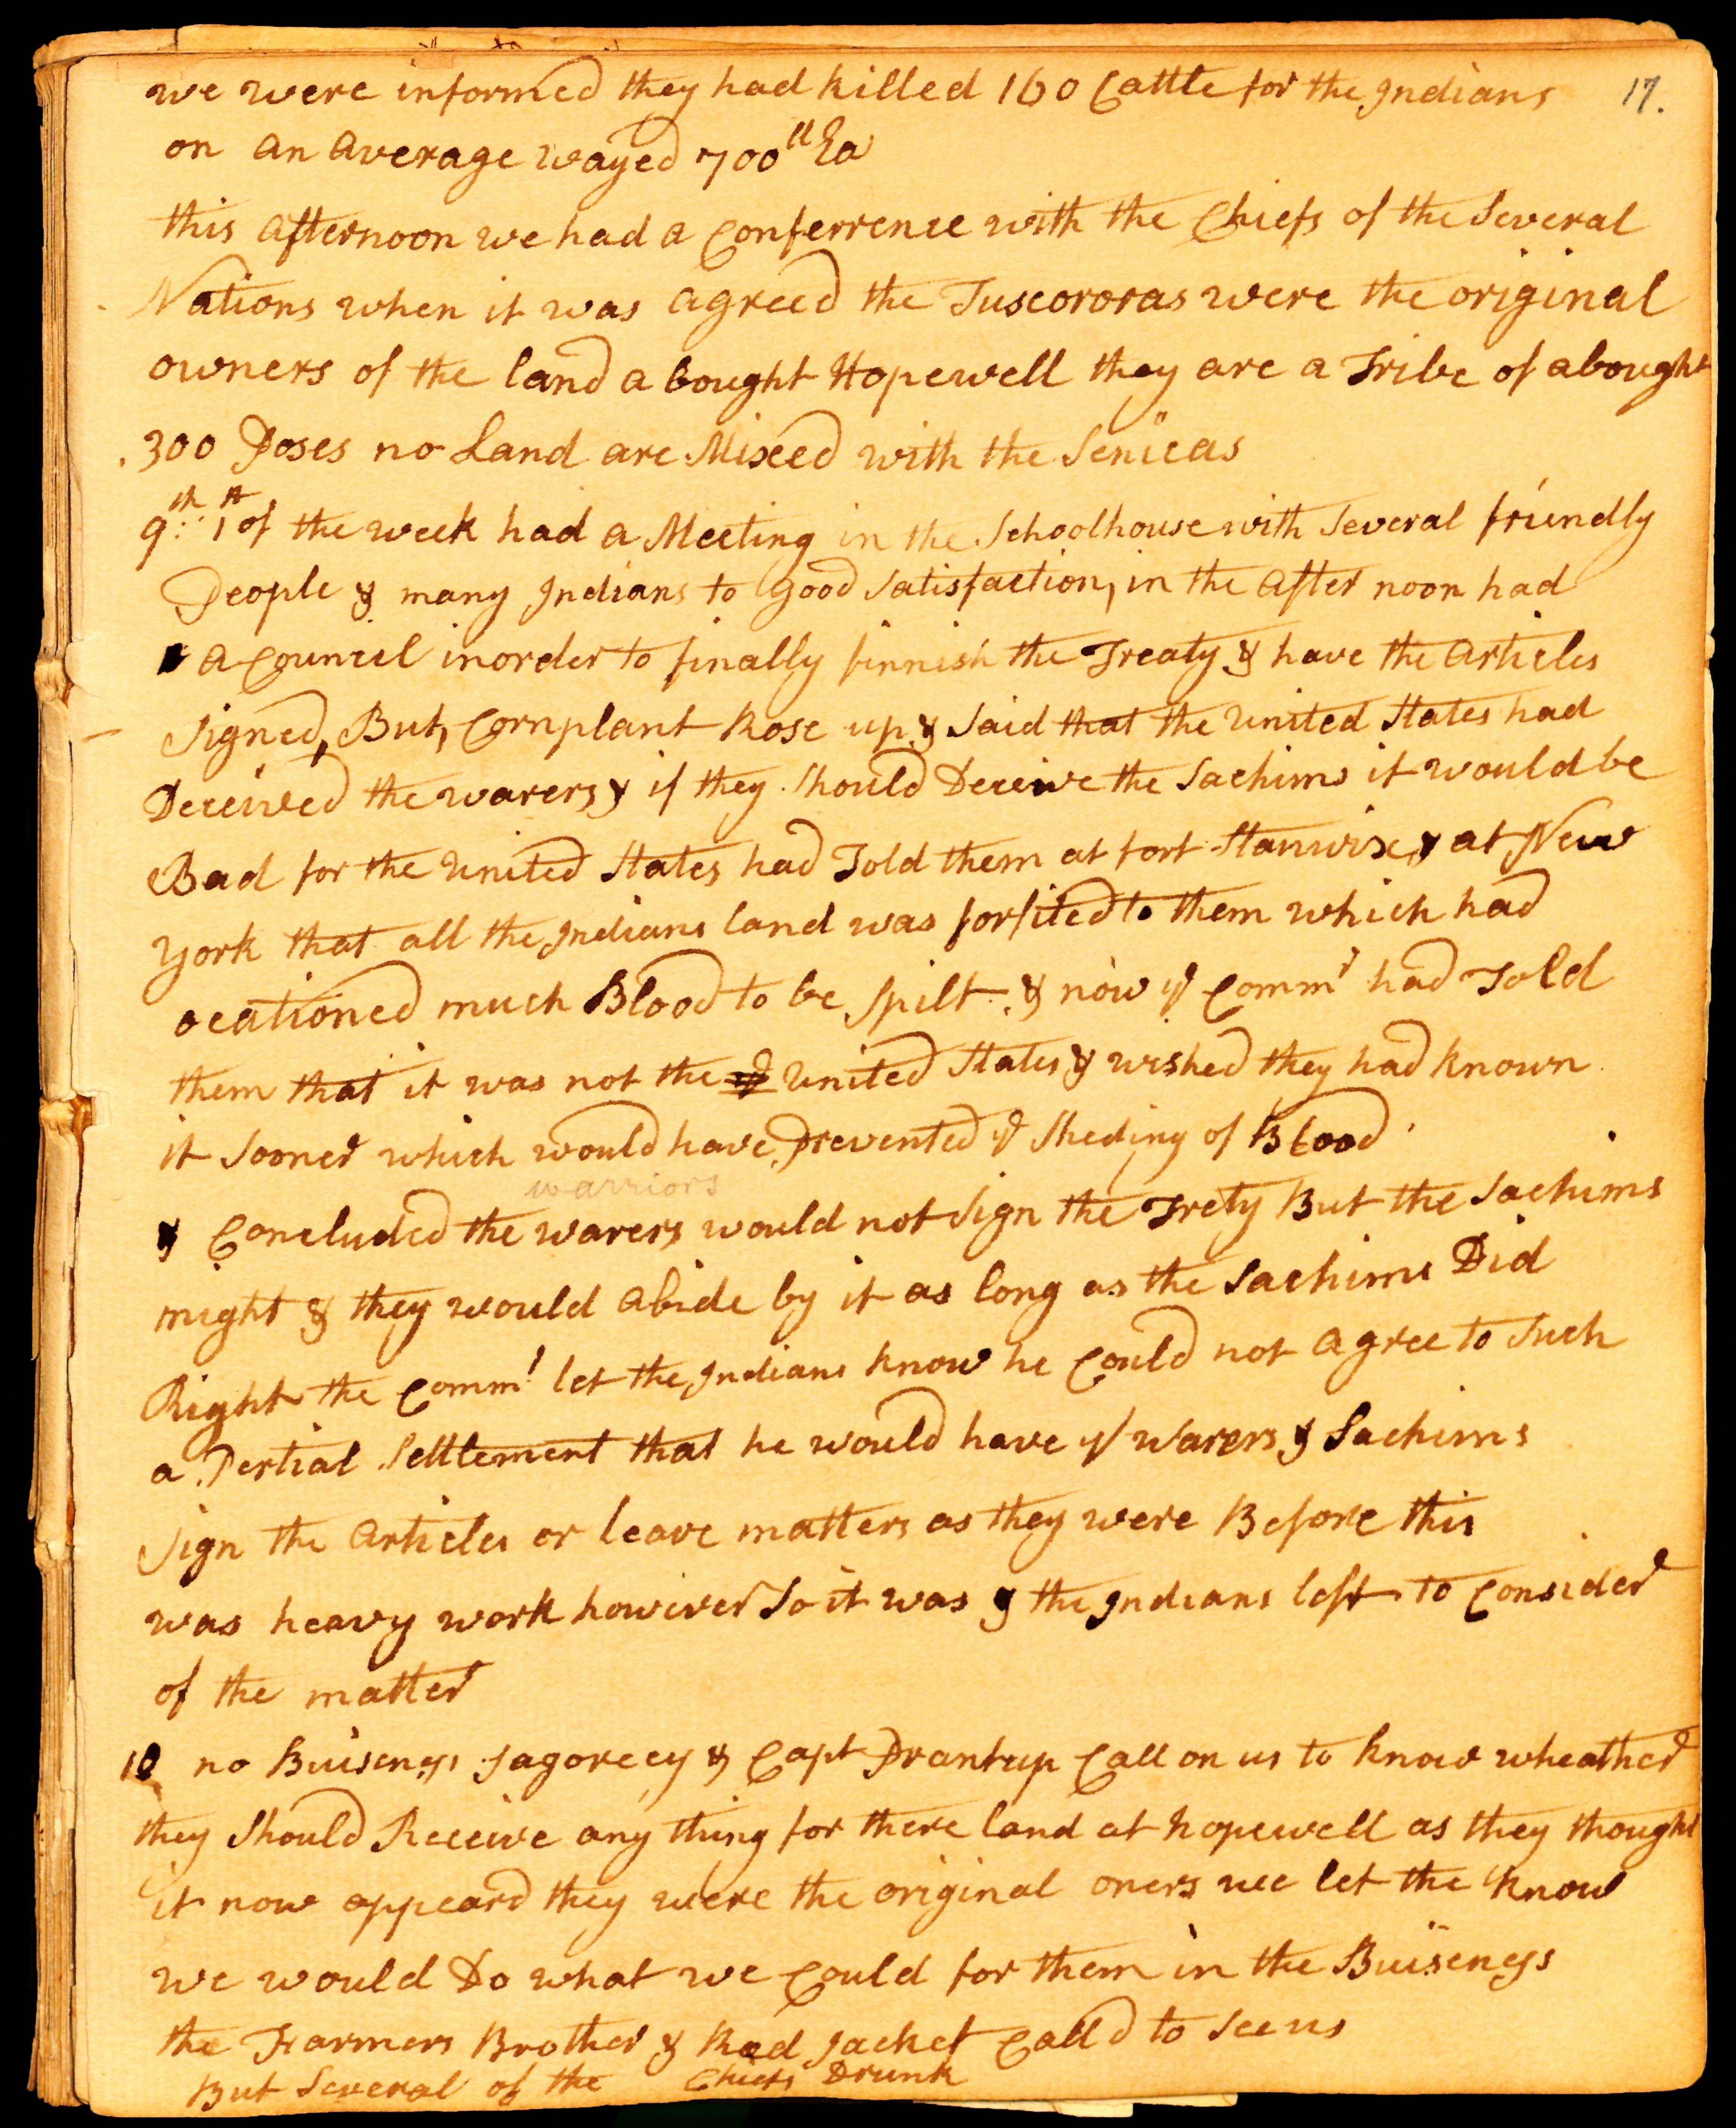 we were informed they had killed 160 Cattle for the Indians 17.
on an average wayed 700ll Ea
this afternoon we had a Conferrence with the Chiefs of the Several
Nations when it was agreed the Tuscororas were the original
owners of the land a bought Hopewell they are a Tribe of abought
300 Poses no Land are Mixed with the Senicas
9th: 1st of the week had a Meeting in the Schoolhouse with Several friendly
People & many Indians to good Satisfaction, in the after noon had
a Council inorder to finally finnish the Treaty & have the articles
Signed, But, Cornplant Rose up & Said that the united States had
Deceived the warers & if they Should Deceive the Sachims it would be
Bad for the united States had Told them at fort Stanwix & at New
York that all the Indians land was forfited to them which had
ocationed much Blood to be Spilt & now ye Commr had Told
them that it was not the ye united States & wished they had known
it Sooner which would have Prevented ye Sheding of Blood
warriors
& Concluded the warers would not Sign the Trety But the Sachims
might & they would abide by it as long as the Sachims Did
Right the Commr let the Indians know he Could not agree to Such
a Pertial Settlement that he would have ye warers & Sachims
Sign the articles or leave matters as they were Before this
was heavy work however So it was & the Indians left to Consider
of the matter
10 no Buisenys Sagorecy & Capt Prantup Call on us to know wheather
they Should Receive any thing for there land at hopewell as they thought
it now appeard they were the original oners we let the know
we would Do what we Could for them in the Buisenys
the Farmers Brother & Red Jacket Calld to See us
But Several of the Chiefs Drunk